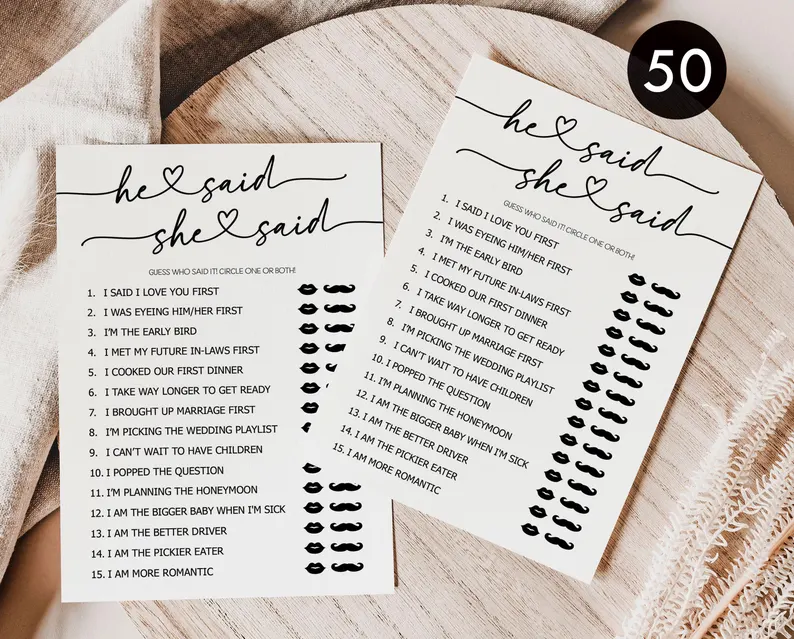 50
he said
she said
GUESS WHO SAID IT! CIRCLE ONE OR BOTH!
1. I SAID I LOVE YOU FIRST
2. I WAS EYEING HIM/HER FIRST
3. I'M THE EARLY BIRD
4. I MET MY FUTURE IN-LAWS FIRST
5. I COOKED OUR FIRST DINNER
6. I TAKE WAY LONGER TO GET READY
7. I BROUGHT UP MARRIAGE FIRST
8. I'M PICKING THE WEDDING PLAYLIST
9. I CAN'T WAIT TO HAVE CHILDREN
10. I POPPED THE QUESTION
11. I'M PLANNING THE HONEYMOON
12. I AM THE BIGGER BABY WHEN I'M SICK
13. I AM THE BETTER DRIVER
14. I AM THE PICKIER EATER
15. I AM MORE ROMANTIC
he said
she said
GUESS WHO SAID IT! CIRCLE ONE OR BOTH!
1. I SAID I LOVE YOU FIRST
2. I WAS EYEING HIM/HER FIRST
3. I'M THE EARLY BIRD
4. I MET MY FUTURE IN-LAWS FIRST
5. I COOKED OUR FIRST DINNER
6. I TAKE WAY LONGER TO GET READY
7. I BROUGHT UP MARRIAGE FIRST
8. I'M PICKING THE WEDDING PLAYLIST
9. I CAN'T WAIT TO HAVE CHILDREN
10. I POPPED THE QUESTION
11. I'M PLANNING THE HONEYMOON
12. I AM THE BIGGER BABY WHEN I'M SICK
13. I AM THE BETTER DRIVER
14. I AM THE PICKIER EATER
15. I AM MORE ROMANTIC